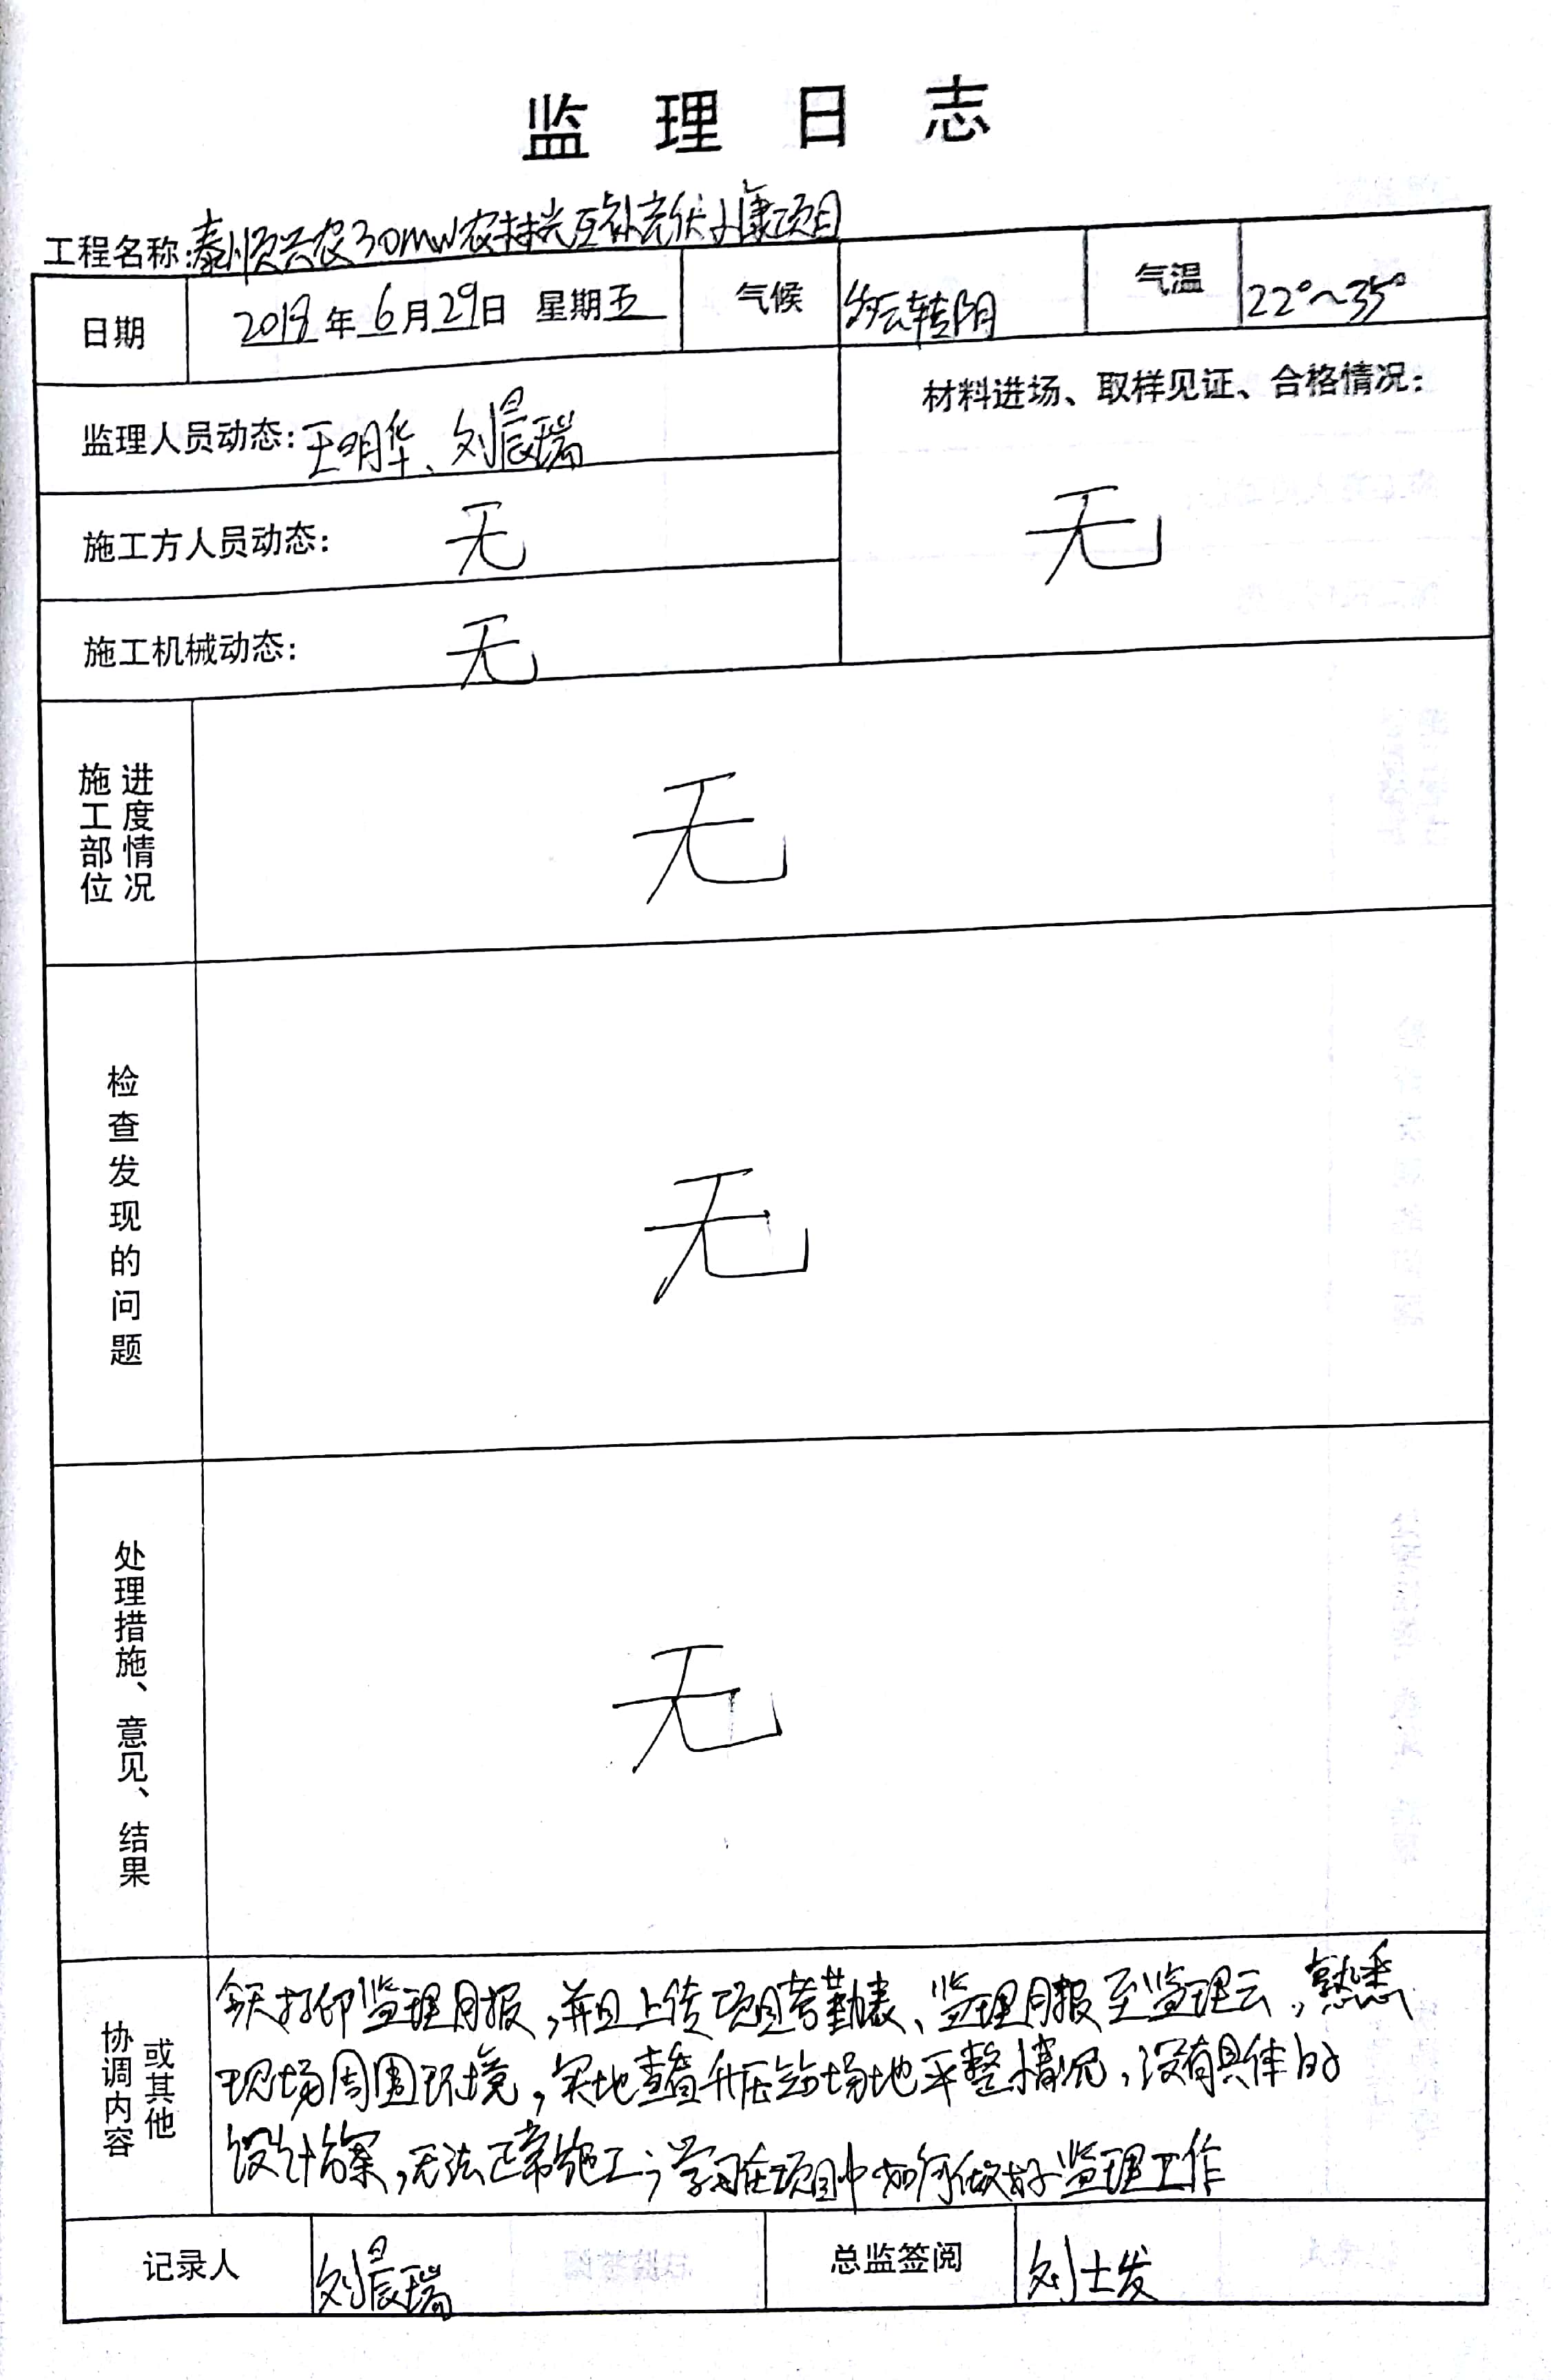 监理日志
工程名称:泰顺兴农30mw农林光互补光伏小康项目
日期 2018年6月29日 星期五 气候 多云转阴 气温 22°~35°
监理人员动态:王明华、刘晨瑞
材料进场、取样见证、合格情况:
无
施工方人员动态: 无
施工机械动态: 无
施工部位
进度情况
无
检查发现的问题
无
处理措施、意见、结果
无
协调内容
或其他
今天打印监理月报,并且上传项目考勤表、监理月报至监理云,熟悉
现场周围环境,实地查看升压站场地平整情况,没有具体的
设计方案,无法正常施工;学习在项目中如何做好监理工作
记录人 刘晨瑞 总监签阅 刘士发